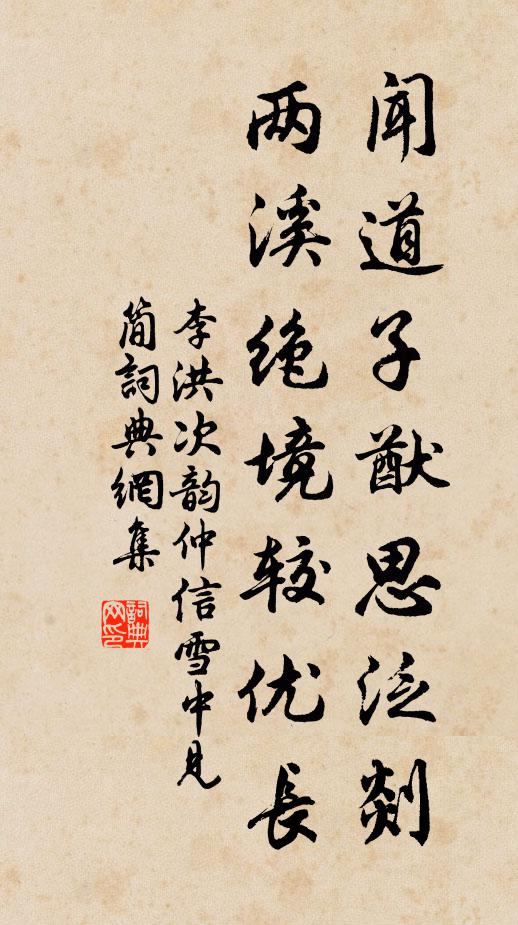 闻道子猷思泛剡
两溪绝境较优长
李洪次韵仲信雪中见
简詞典網集
詞典网印